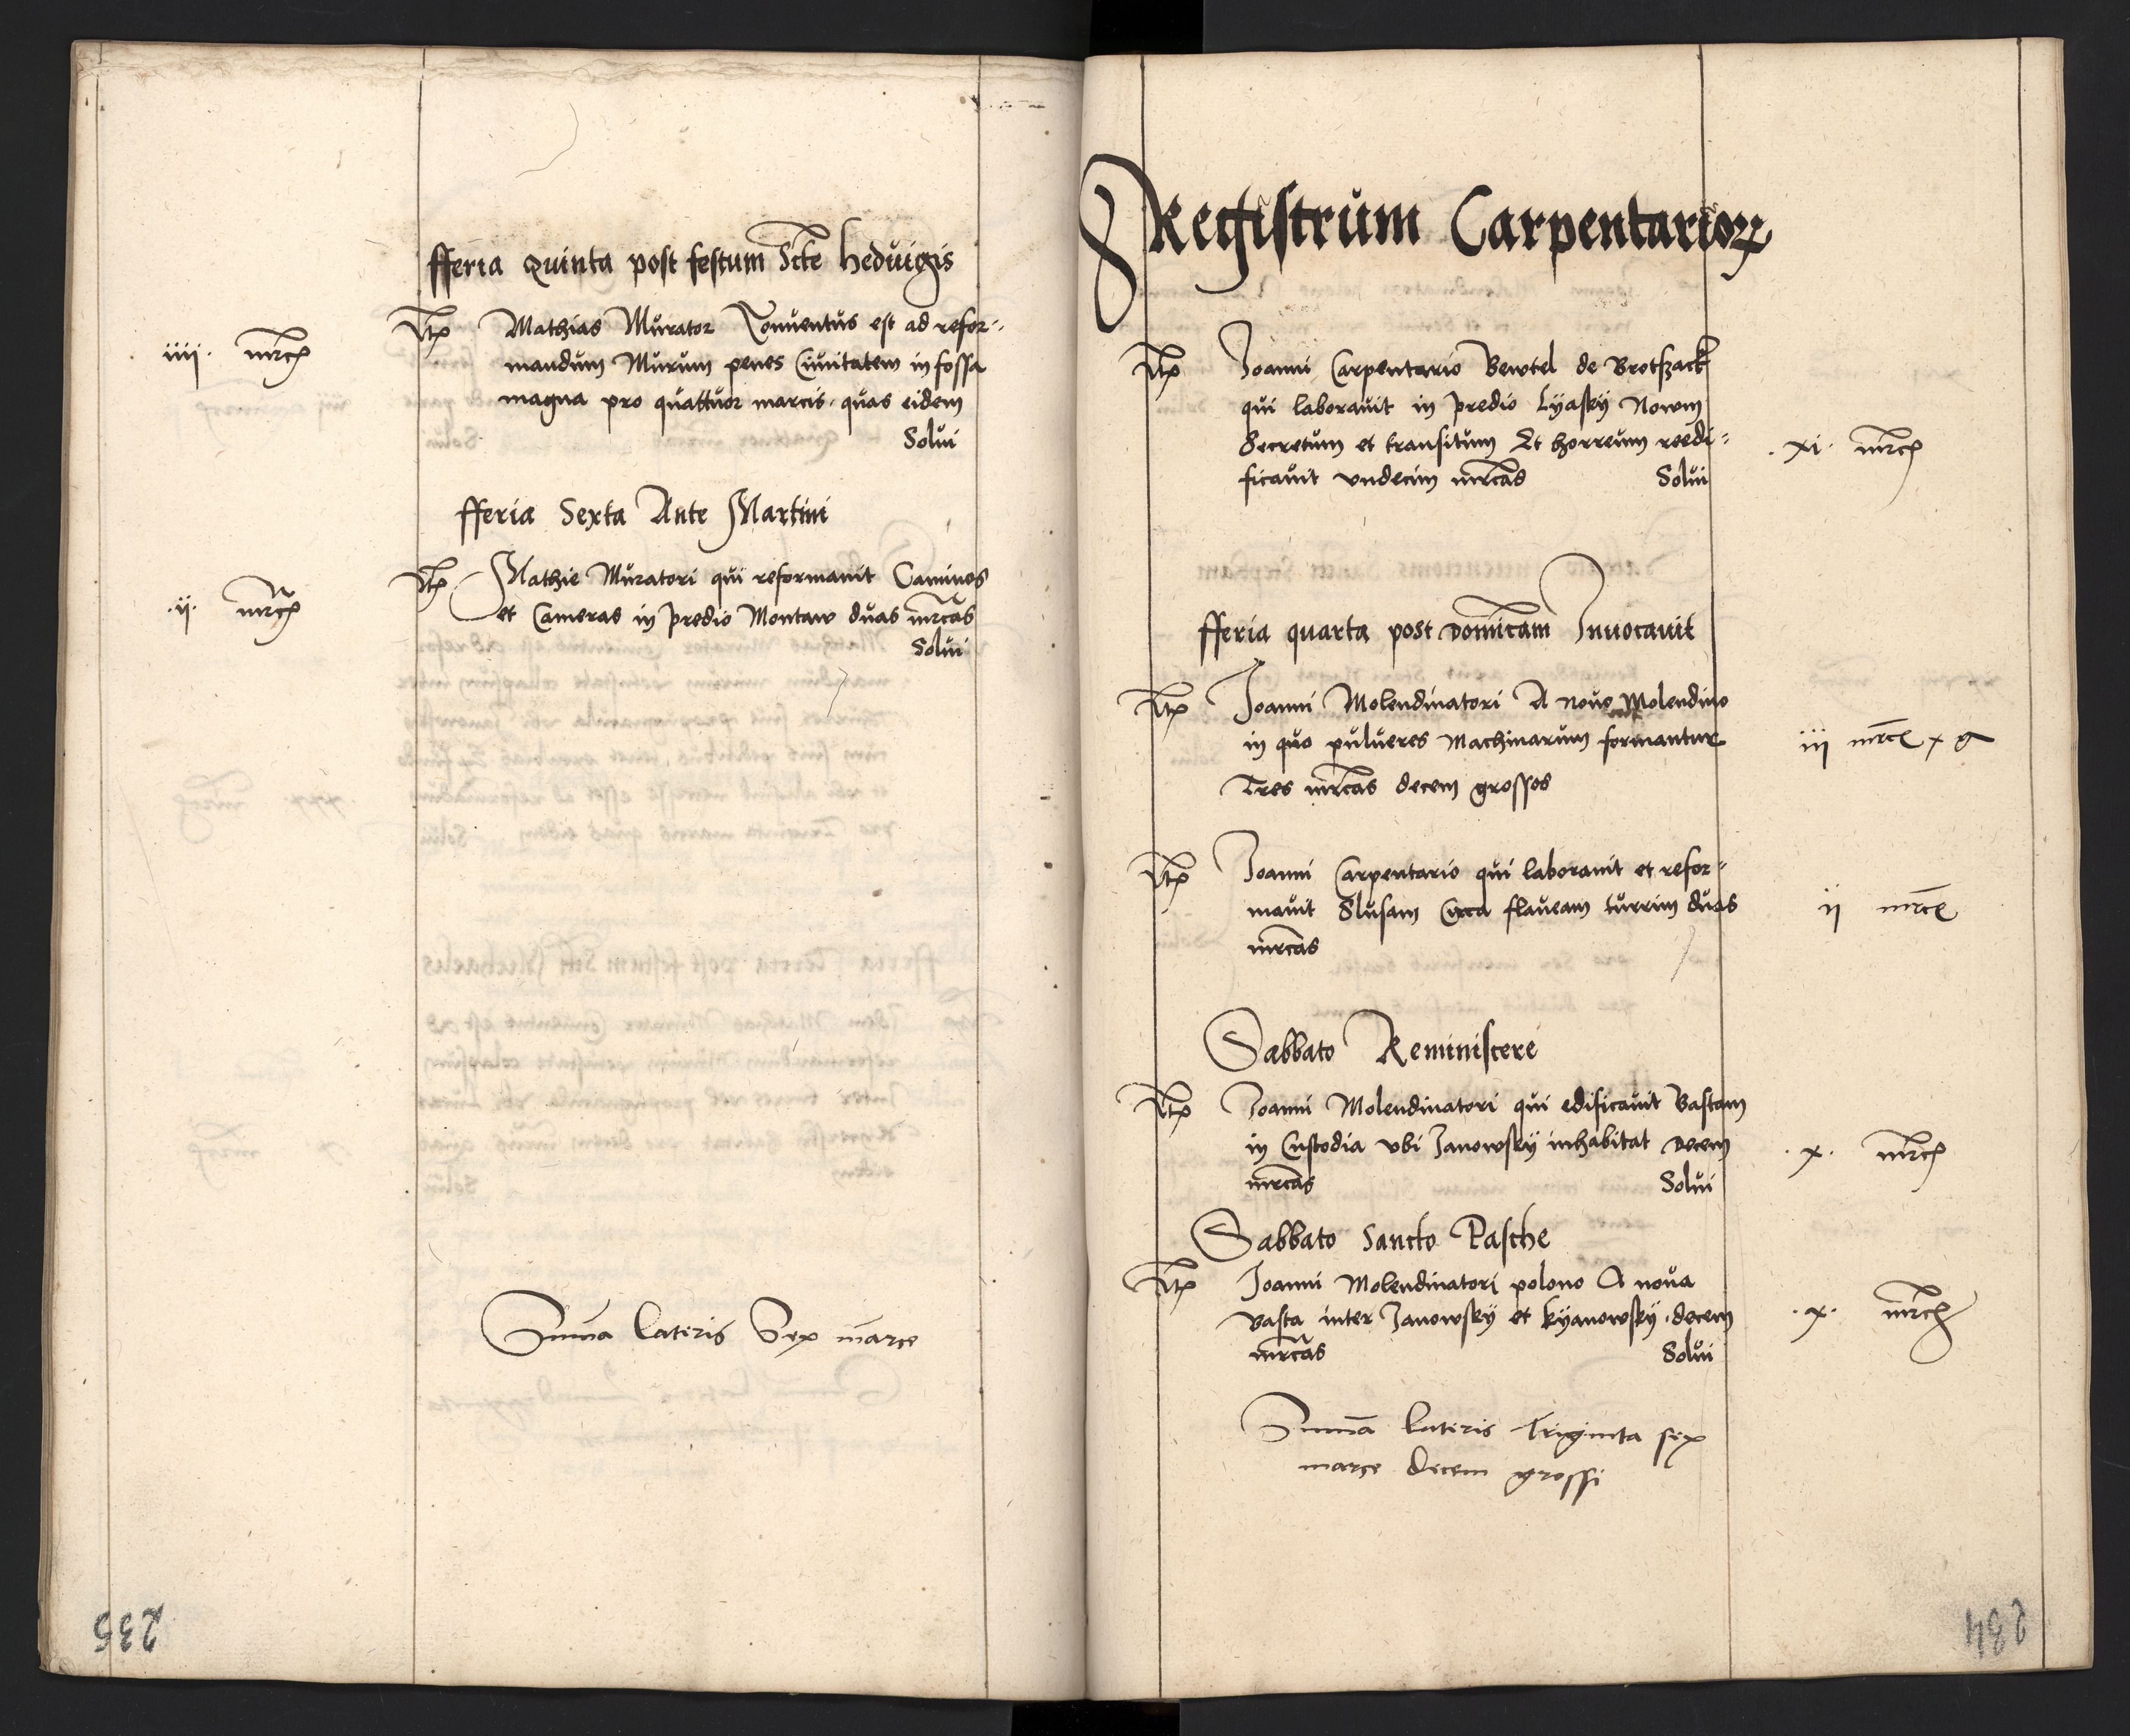 fferia Quinta post festum Scte Hedvigis
Itp Mathias Murator Conventus est ad refor-
mandum Murum penes Civitatem in fossa
magna pro quattuor marcis quas eidem
Solvi
iiii mrc
fferia Sexta Ante Martini
Itp Mathie Muratori qui reformavit Caminos
et Cameras in predio Montaw duas mrcas
Solvi
ii mrc
Suma Lateris Sex marce
235
Registrum Carpentarioꝝ
Itp Joanni Carpentario Bewtel de Brotszack
qui laboravit in predio Lyasky Novum
Secretum et transitum Et horreum reedi-
ficavit undecim mrcas Solvi
xi mrc
fferia quarta post Domicam Invocavit
Itp Joanni Molendinatori A novo Molendino
in quo pulveres Machinarum formantur
Tres mrcas decem grossos
iii mrce x g
Itp Joanni Carpentario qui laboravit et refor-
mavit Slusam Circa flaveam turrim duas
mrcas
ii mrce
Sabbato Reminiscere
Itp Joanni Molendinatori qui edificavit Bastam
in Custodia ubi Janowsky inhabitat Decem
mrcas Solvi
x mrc
Sabbato Sancto Pasche
Itp Joanni Molendinatori polono A nova
Basta inter Janowsky et Kyanowsky decem
mrcas Solvi
x mrc
Suma lateris Triginta sex
marce decem grossi
234